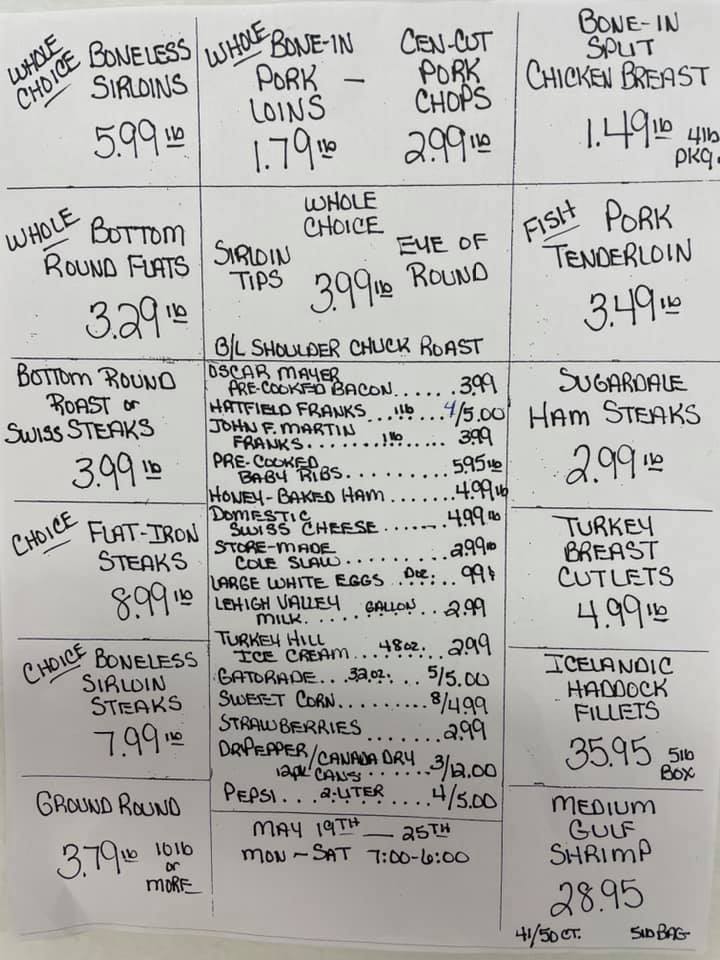 WHOLE CHOICE BONELESS
SIRLOINS
5.99 lb
WHOLE BONE-IN
PORK -
LOINS
1.79 lb
CEN-CUT
PORK
CHOPS
2.99 lb
BONE-IN
SPLIT
CHICKEN BREAST
1.49 lb 4lb
PKG.
WHOLE BOTTOM
ROUND FLATS
3.29 lb
WHOLE
CHOICE
SIRLOIN
TIPS
3.99 lb
EYE OF
ROUND
B/L SHOULDER CHUCK ROAST
FISH PORK
TENDERLOIN
3.49 lb
BOTTOM ROUND
ROAST or
SWISS STEAKS
3.99 lb
OSCAR MAYER
PRE-COOKED BACON...... 3.99
HATFIELD FRANKS ...1lb.... 4/5.00
JOHN F. MARTIN
FRANKS........1lb..... 3.99
PRE-COOKED
BABY RIBS......... 5.95 lb
HONEY-BAKED HAM....... 4.99 lb
DOMESTIC
SWISS CHEESE....... 4.99 lb
STORE-MADE
COLE SLAW......... 2.99 lb
LARGE WHITE EGGS Doz.... .99¢
LEHIGH VALLEY
MILK..... GALLON... 2.99
TURKEY HILL
ICE CREAM...48oz.... 2.99
GATORADE...32oz.... 5/5.00
SWEET CORN......... 8/4.99
STRAWBERRIES....... 2.99
DR PEPPER/CANADA DRY
12pk CANS....... 3/12.00
PEPSI...2-LITER..... 4/5.00
MAY 19TH — 25TH
MON ~ SAT 7:00-6:00
SUGARDALE
HAM STEAKS
2.99 lb
CHOICE FLAT-IRON
STEAKS
8.99 lb
TURKEY
BREAST
CUTLETS
4.99 lb
CHOICE BONELESS
SIRLOIN
STEAKS
7.99 lb
ICELANDIC
HADDOCK
FILLETS
35.95 5lb
BOX
GROUND ROUND
3.79 lb 10lb
or
MORE
MEDIUM
GULF
SHRIMP
28.95
41/50 CT. 5lb BAG